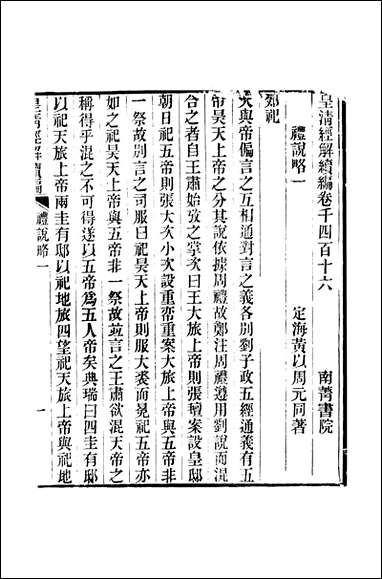 皇清經解續編卷千四百十六
南菁書院
禮說略一
定海黃以周元同著
郊祀
天與帝偏言之互相通對言之義各別劉子政五經通義有五
帝昊天上帝之分其說依據周禮故鄭注周禮遵用劉說而混
合之者自王肅始攷之掌次曰王大旅上帝則張氊案設皇邸
朝日祀五帝則張大次小次設重帟重案大旅上帝與祀五帝非
一祭故別言之司服曰祀昊天上帝則服大裘而冕祀五帝亦
如之祀昊天上帝與五帝非一祭故竝言之王肅欲混天帝之
稱得乎混之不可得遂以五帝爲五人帝矣典瑞曰四圭有邸
以祀天旅上帝兩圭有邸以祀地旅四望祀天旅上帝與祀地
禮說略一
一